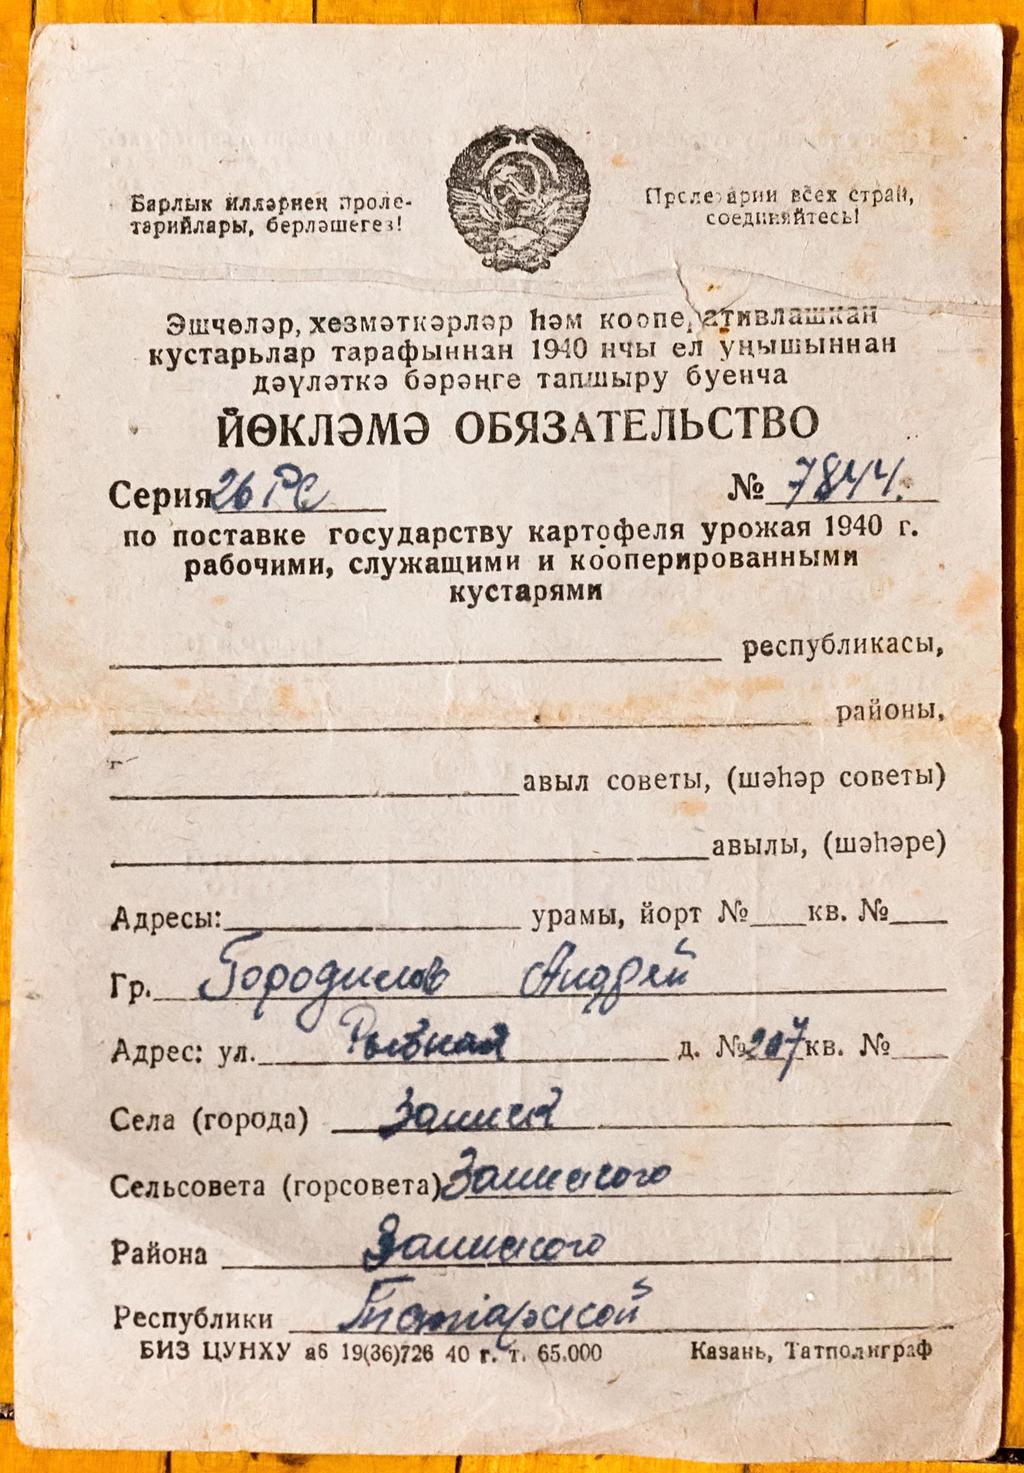 Барлык илләрнең проле-
тарийлары, берләшегез!
Пролетарии всех стран,
соединяйтесь!
Эшчеләр, хезмәткәрләр һәм кооперативлашкан
кустарьлар тарафыннан 1940 нчы ел уңышыннан
дәүләткә бәрәңге тапшыру буенча
ЙӨКЛӘМӘ ОБЯЗАТЕЛЬСТВО
Серия 26 РС № 7844.
по поставке государству картофеля урожая 1940 г.
рабочими, служащими и кооперированными
кустарями
республикасы,
районы,
авыл советы, (шәһәр советы)
авылы, (шәһәре)
Адресы: урамы, йорт № кв. №
Гр. Городилов Андрей
Адрес: ул. д. № 207 кв. №
Села (города) Заинск
Сельсовета (горсовета) Заинского
Района Заинского
Республики Татарской
БИЗ ЦУНХУ аб 19(36)726 40 г. т. 65.000 Казань, Татполиграф